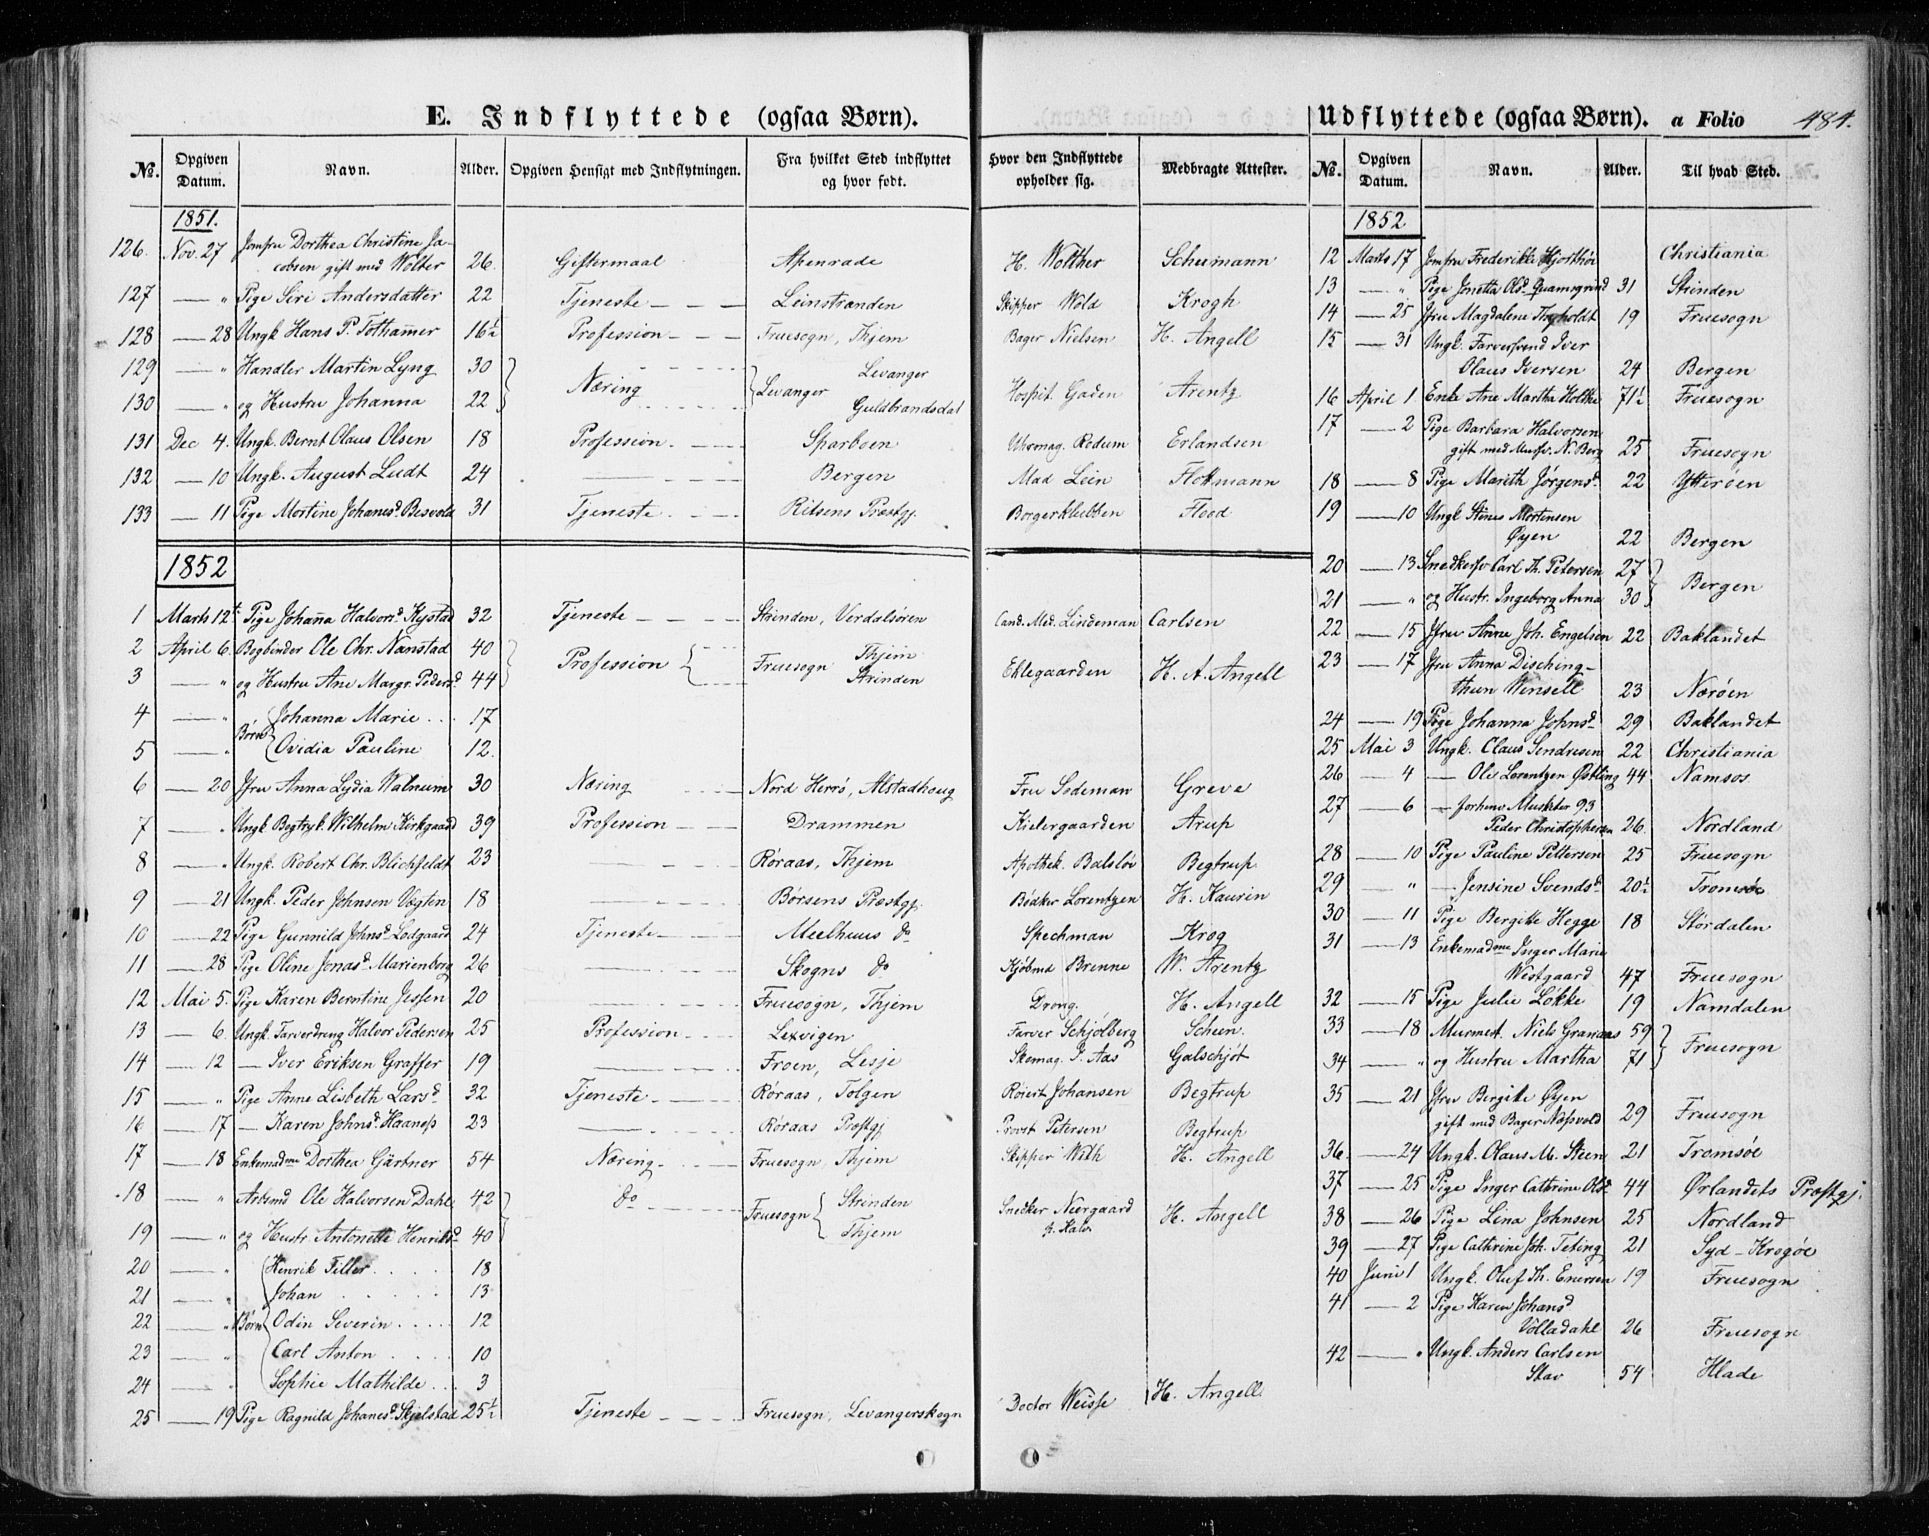 E. Indflyttede (ogsaa Børn).
No. Opgiven Datum. Navn. Alder. Opgiven Hensigt med Indflytningen. Fra hvilket Sted indflyttet og hvor født. Hvor den Indflyttede opholder sig. Medbragte Attester.
1851.
126. Nov. 27 Jomfru Dorthea Christine Ja-
cobsen gift med Wolter 26 Giftermaal Apenrade H. Wolther Schumann
127 — " Pige Siri Andersdatter 22 Tjeneste Leinstranden Skipper Wold Krogh
128 — 28 Ungk Hans P. Tothamer 16½ Profession Fruesogn, Thjem Bager Nielsen H. Angell
129 — " Handler Martin Lyng 30 Næring Levanger Levanger
130 — " og Hustru Johanna 22 Guldbrandsdal Hospit. Gaden Arentz
131 Dec 4. Ungk. Bernt Olaus Olsen 18 Profession Sparboen Uhrmag. Rodum Erlandsen
132 — 10 Ungk. August Ludt 24 — Bergen Mad Lein Flottmann
133 — 11 Pige Martine Johanesd. Besvold 31 Tjeneste Ritsens Præstgj. Borgerklubben Flood
1852
1 Marts 12t Pige Johanna Halvorsd. Kystad 32 Tjeneste Strinden, Verdalsøren Cand. Med. Lindeman Carlsen
2 April 6. Bogbinder Ole Chr. Nanstad 40 Profession Fruesogn Thjem
3 — " og Hustru Ane Margr. Pedersd. 44 Strinden Eklegaarden H. A. Angell
4 — " Børn Johanna Marie 17
5 — " Ovidia Pauline 12.
6 — 20 Jfru Anna Lydia Walnum 30 Næring Nord Herrø, Alstadhoug Fru Sodeman Greve
7 — " Ungk Bogtryk. Wilhelm Kirkgaard 39 Profession Drammen Kielergaarden Arup
8 — " Ungk. Robert Chr. Blichfeldt 23 — Røraas, Thjem Apothek. Balsløv Begtrup
9 — 21 Ungk. Peder Johnsen Vegten 18 — Børsens Præstgj. Bødker Lorentzen H. Kaurin
10 — 22 Pige Gunnild Johnsd. Lodgaard 24 Tjeneste Meelhuus do Spechman Krog
11 — 28 Pige Oline Jonasd. Marienborg 26 — Skogns do Kjøbmd Brenne W. Arentz
12 Mai 5. Pige Karen Berntine Jessen 20 — Fruesogn, Thjem Drong. H. Angell
13 — 6. Ungk. Farverdreng Halvor Pedersen 25 Profession Lexvigen Farver Schjølberg Scheen.
14 — 12 — Iver Eriksen Graffer 19 — Froen, Lesje Skomag. P. Aas Galschjøt
15 — " Pige Anne Lisbeth Larsd. 32 Tjeneste Røraas, Tolgen Røiert Johansen Begtrup
16 — 17 — Karen Johnsd. Haanes 23 — Røraas Præstgj Provst Petersen Begtrup
17 — 18 Enkemadme Dorthea Gjärtner 54 Næring Fruesogn, Thjem Skipper With H. Angell
18 — " Arbmd Ole Halvorsen Dahl 42 do Fruesogn Strinden Snecker Neergaard H. Angell
19 — " og Hustr. Antonette Henriksd. 40 Thjem
20 — " Henrik Tiller 18
21 — " Johan 13
22 — " Børn Odin Severin 12
23 — " Carl Anton 10
24 — " Sophie Mathilde 3
25 — 19 Pige Ragnild Johanesd. Skjelstad 25½ Tjeneste Fruesogn, Levangerskogn Doctor Weisse H. Angell
Udflyttede (ogsaa Børn). a Folio 484.
No. Opgiven Datum. Navn. Alder. Til hvad Sted.
1852
12 Marts 17 Jomfru Frederikke Hjorthøi Christiania
13 — " Pige Jonetta Olsd. Quamsgrind 31 Strinden
14 — 25 Jfru Magdalene Thyholdt 19 Fruesogn
15 — 31 Ungk. Farversvend Iver
Olaus Iversen 24 Bergen
16 April 1 Enke Ane Martha Holtke 71½ Fruesogn
17 — 2 Pige Barbara Halvorsen
gift med N. Berg 25 Fruesogn
18 — 8 Pige Marith Jørgensd. 22 Ytterøen
19 — 10 Ungk Stinus Mortensen
Øyen 22 Bergen
20 — 13 Snedkersv Carl Th. Petersen 27 Bergen
21 — " og Hustr. Ingeborg Anna 30
22 — 15 Jfru Anne Joh. Engelsen 22 Baklandet
23 — 17 Jfru Anna Disching-
thun Wensell 23 Nærøen
24 — 19 Pige Johanna Johnsd. 29 Baklandet
25 Mai 3 Ungk. Claus Sendresen 22 Christiania
26 — 4 — Ole Lorentzen Østling 44 Namsos
27 — 6 — forhenv Musketer 93
Peder Christophersen 26. Nordland
28 — 10 Pige Pauline Pettersen 25 Fruesogn
29 — " — Jensine Svendsd. 20½ Tromsøe
30 — 11 Pige Bergitte Hegge 18 Stördalen
31 — 13 Enkemadme Inger Marie
Westgaard 47 Fruesogn
32 — 15 Pige Julie Løkke 19 Namdalen
33 — 18 Murmest. Niels Granaas 59 Fruesogn
34 — " og Hustru Martha 71
35 — 21 Jfru Bergitte Øyen
gift med Bager Næssvold 29 Fruesogn
36. — 24 Ungk. Olaus M. Steen 21 Tromsøe
37 — 25 Pige Inger Cathrine Olsd. 44 Ørlandets Præstgj.
38 — 26 Pige Lina Johnsen 25 Nordland
39 — 27 Pige Cathrine Joh. Teting 21 Syd-Krogøe
40 Juni 1 Ungk. Oluf Th. Enersen 19 Fruesogn
41 — 2 Pige Karen Johansd
Volladahl 26 Fruesogn
42 — " Ungk. Anders Carlsen
Stav 54 Hlade